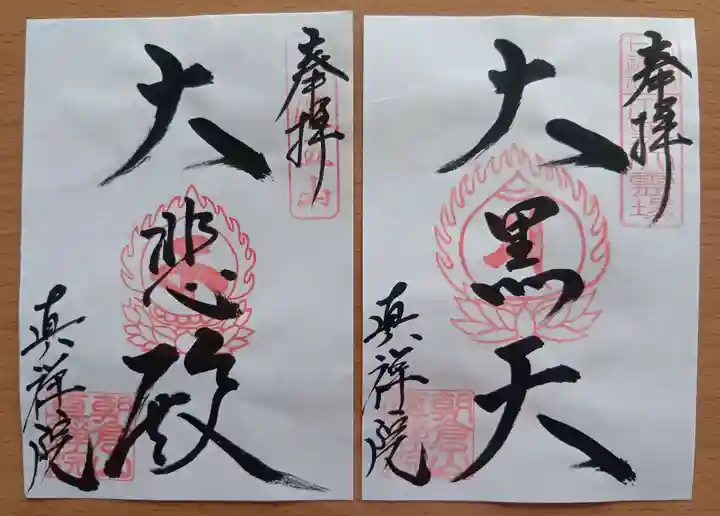 奉拝
大悲殿
真祥院
奉拝
大黒天
真祥院
朝倉山